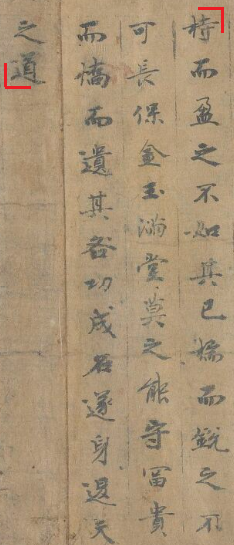 持而盈之不如其已揣而銳之不
可長保金玉滿堂莫之能守冨貴
而憍而遺其咎功成名遂身退天
之道